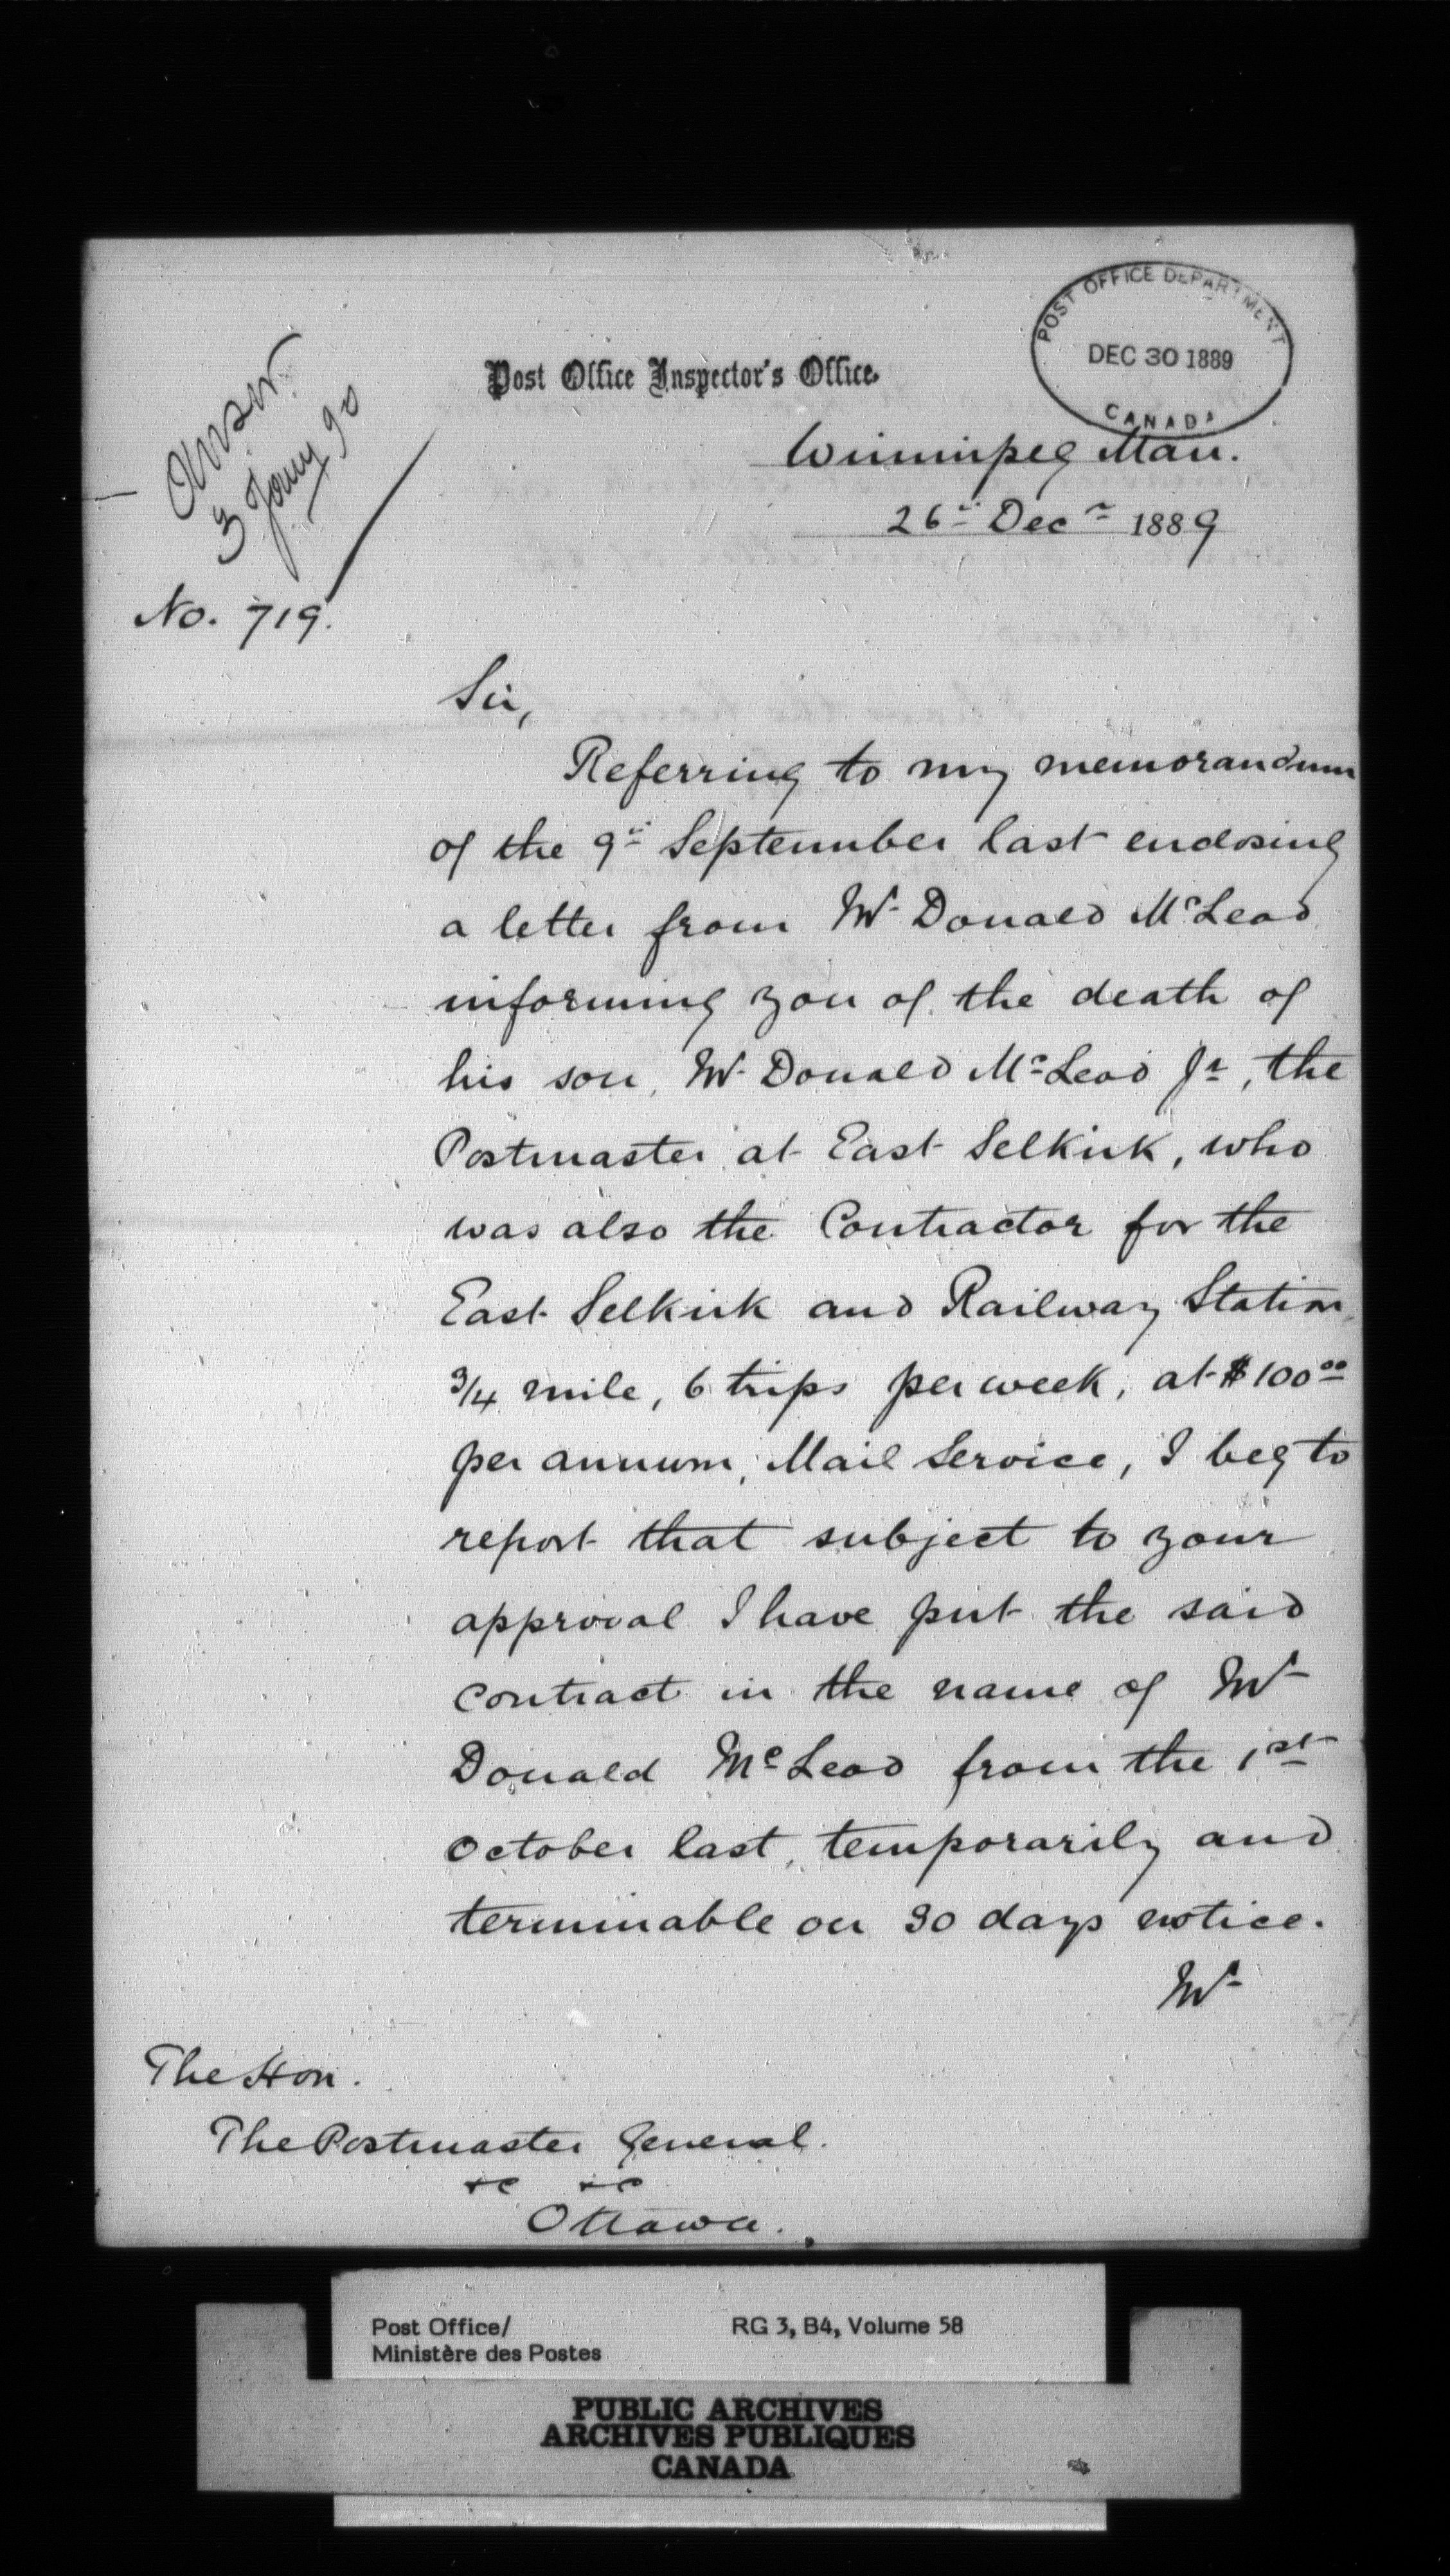 POST OFFICE DEPARTMENT
DEC 30 1889
CANADA
Post Office Inspector's Office.
Winnipeg Man.
26th Decr 1889
Answr.
3 Jany 90
No. 719.
Sir,
Referring to my memorandum
of the 9th September last enclosing
a letter from Mr Donald McLeod
informing you of the death of
his son, Mr Donald McLeod Jr, the
Postmaster at East Selkirk, who
was also the Contractor for the
East Selkirk and Railway Station,
3/4 mile, 6 trips per week, at $100.00
per annum, Mail Service, I beg to
report that subject to your
approval I have put the said
contract in the name of Mr
Donald McLeod from the 1st
October last, temporarily and
terminable on 30 days notice.
Mr
The Hon.
The Postmaster General.
&c &c
Ottawa.
Post Office/ RG 3, B4, Volume 58
Ministère des Postes
PUBLIC ARCHIVES
ARCHIVES PUBLIQUES
CANADA